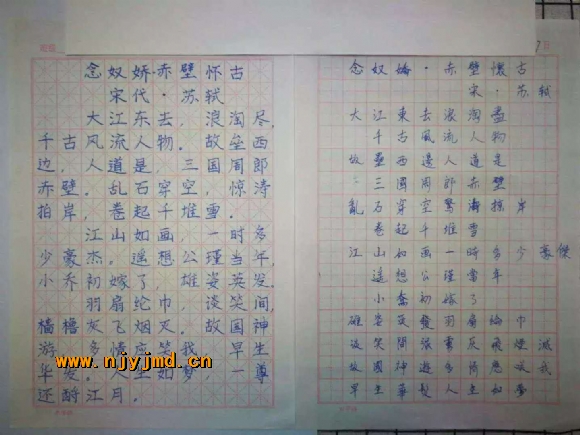 念奴娇·赤壁怀古
宋代·苏轼
大江东去，浪淘尽，
千古风流人物。故垒西
边，人道是，三国周郎
赤壁。乱石穿空，惊涛
拍岸，卷起千堆雪。
江山如画，一时多
少豪杰。遥想公瑾当年，
小乔初嫁了，雄姿英发。
羽扇纶巾，淡笑间，
樯橹灰飞烟灭。故国神
游，多情应笑我，早生
华发。人生如梦，一尊
还酹江月。
www.njyjmd.cn
念奴嬌·赤壁懷古
宋：苏轼
大江東去浪淘盡
千古風流人物
故壘西邊人道是
三國周郎赤壁
亂石穿空驚濤掠岸
卷起千堆雪
江山如画一時多少豪傑
遥想公瑾當年
小喬初嫁了
雄姿英發羽扇綸巾
談笑間檣灰飛煙滅
故國神遊多情應我
早生華髮人生如夢